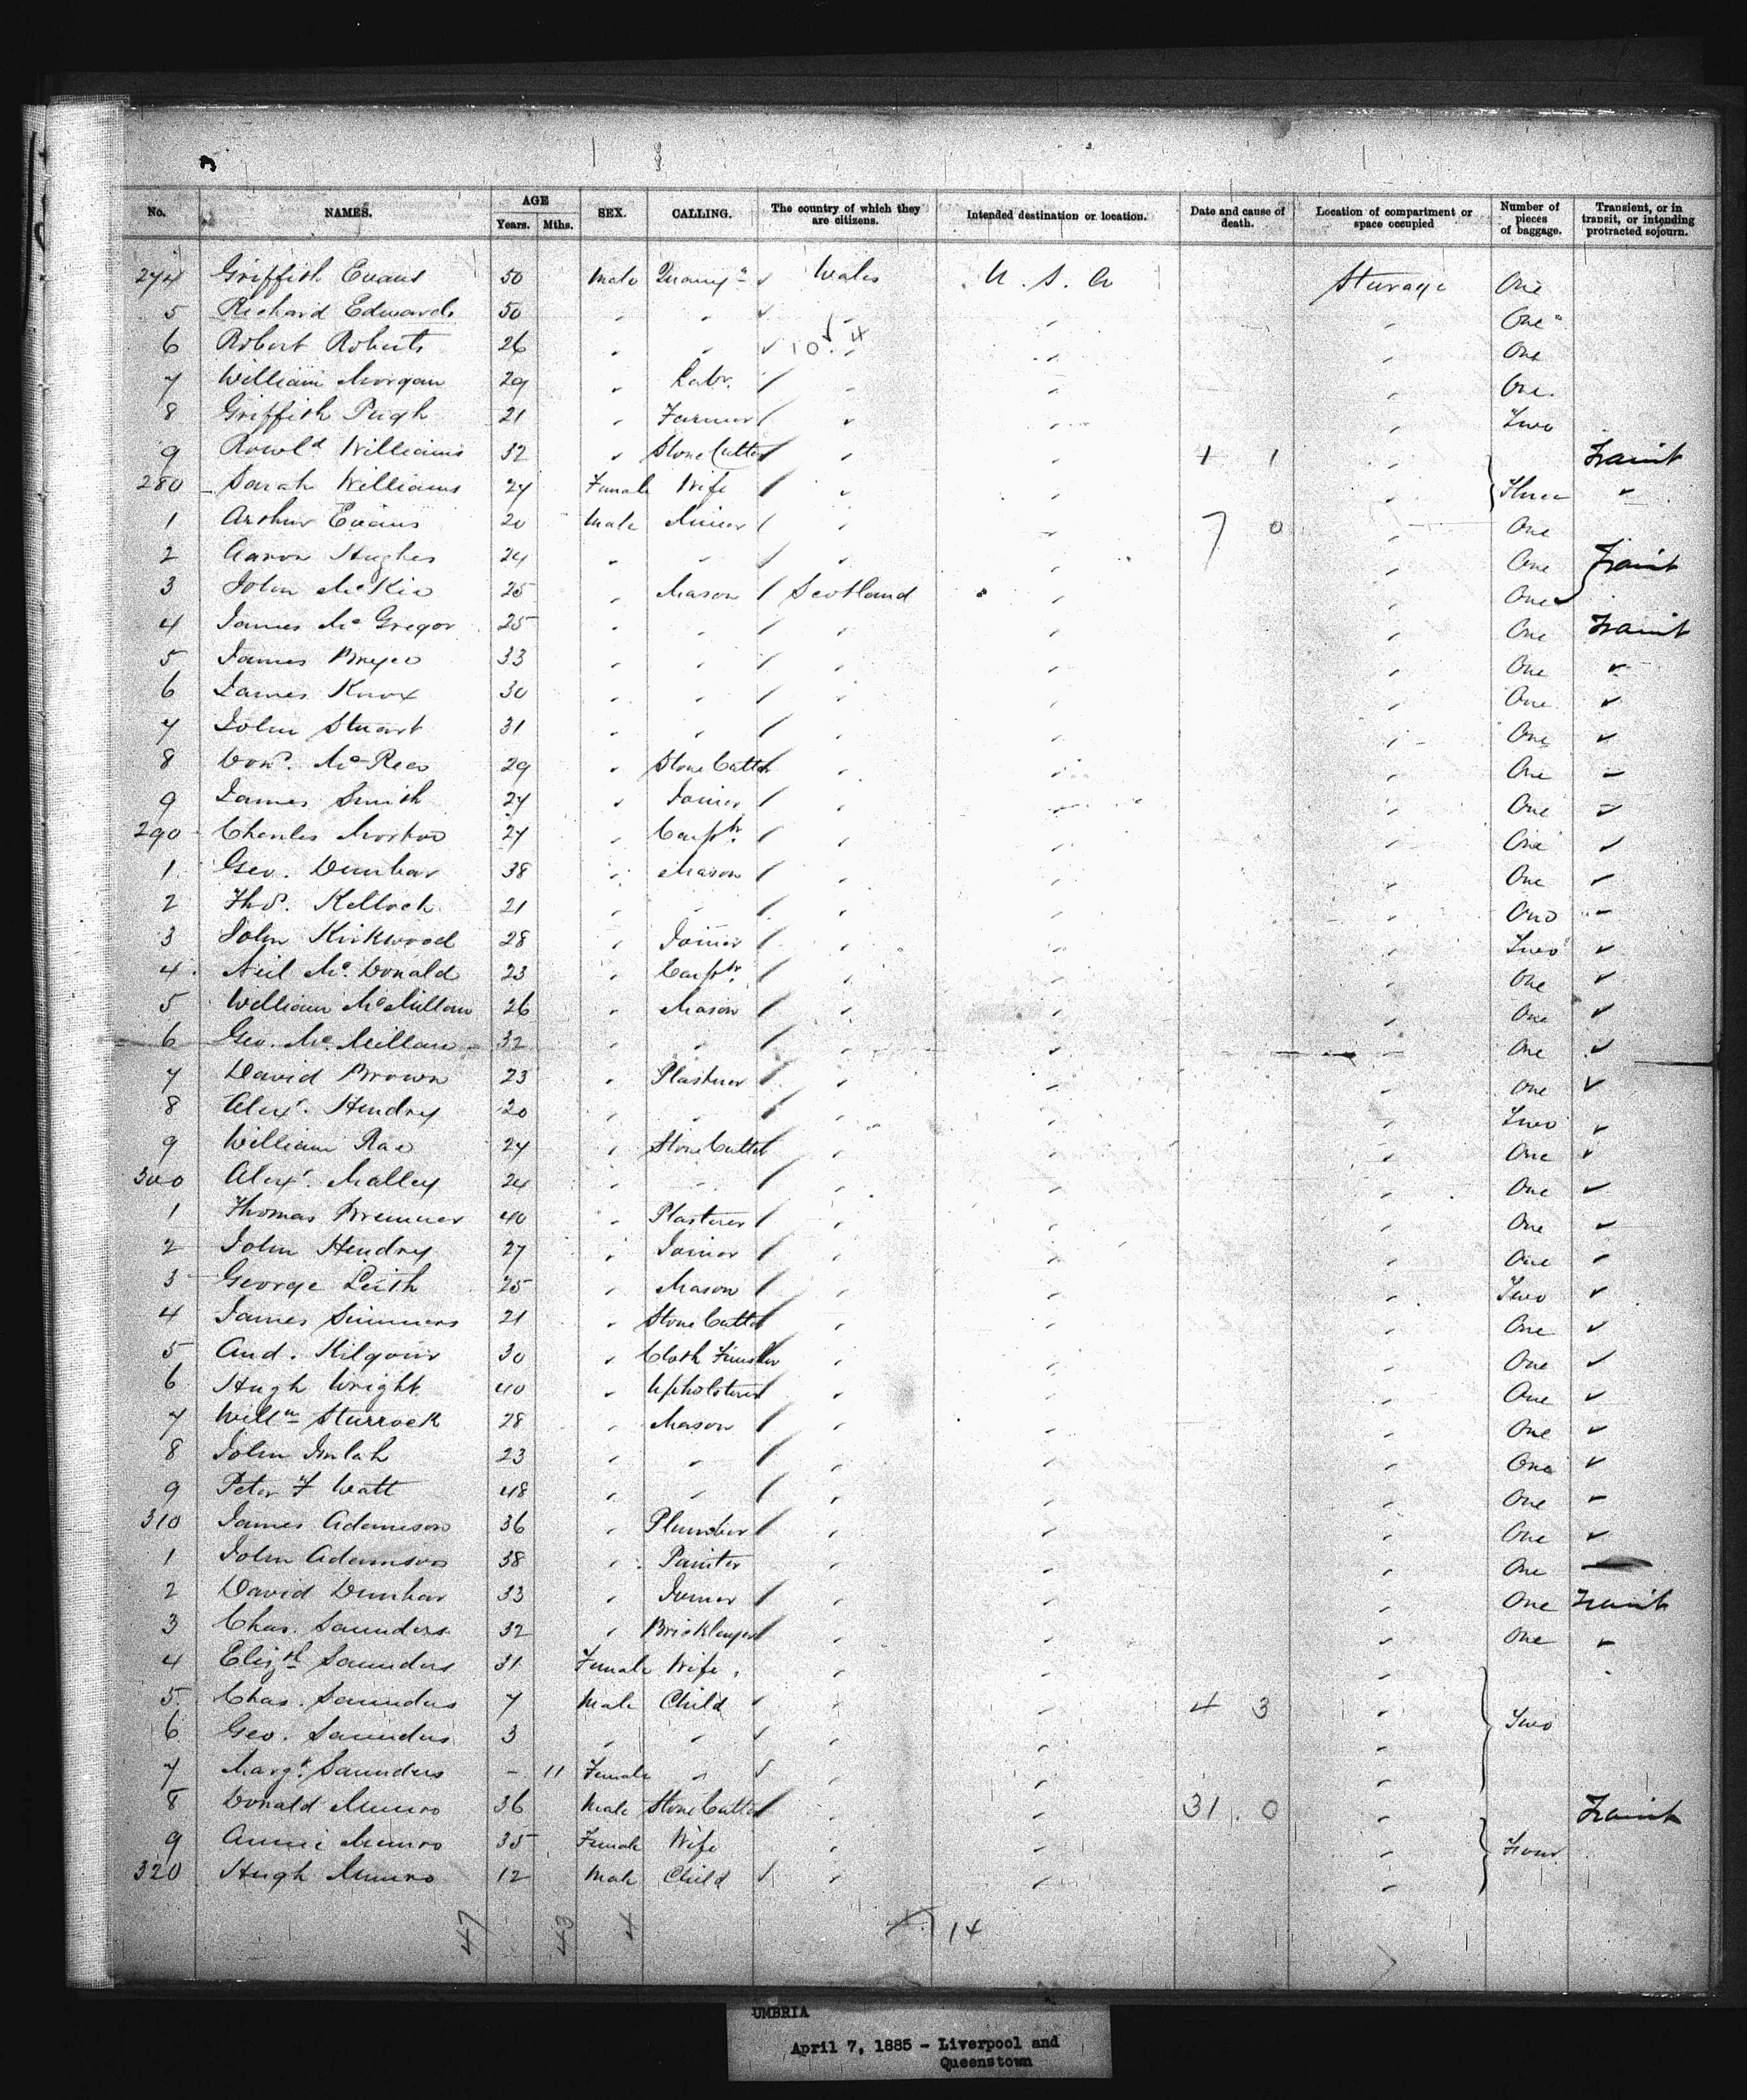 No. NAMES. AGE Years. Mths. SEX. CALLING. The country of which they are citizens. Intended destination or location. Date and cause of death. Location of compartment or space occupied Number of pieces of baggage. Transient, or in transit, or intending protracted sojourn.
274 Griffith Evans 50 Male Wales U. S. A Sturage One
5 Richard Edwards 50 " " " " " One
6 Robert Roberts 26 " " 10. 4 " " " One
7 William Morgan 29 " Labr. " " " One
8 Griffith Pugh 21 " Farmer " " " Two
9 Rowld Williams 32 " Stone Cutter " " 1 1 " Transit
280 Sarah Williams 24 Female Wife " " " Three "
1 Arthur Evans 20 Male Miner " " 7 0 " One
2 Aaron Hughes 24 " " " " " One Transit
3 John McKie 25 " Mason Scotland " " One
4 James McGregor 25 " " " " " One Transit
5 James Bryce 33 " " " " " One "
6 James Knox 30 " " " " " One "
7 John Stuart 31 " " " " " One "
8 Dond. McRae 29 " Stone Cutter " " " One "
9 James Smith 24 " Joiner " " " One "
290 Charles 24 " Carptr. " " " One "
1 Geo. Dunbar 38 " Mason " " " One "
2 Thos. Kelloch 21 " " " " " One "
3 John Kirkwood 28 " Joiner " " " Two "
4 Neil McDonald 23 " Carptr. " " " One "
5 William McMillan 26 " Mason " " " One "
6 Geo. McMillan 32 " " " " " One "
7 David Brown 23 " Plasterer " " " One "
8 Alexr. Hendry 20 " " " " " Two "
9 William Rae 24 " Stone Cutter " " " One "
300 Alexr. Malley 24 " " " " " One "
1 Thomas Bremner 40 " Plasterer " " " One "
2 John Hendry 27 " Joiner " " " One "
3 George Leith 25 " Mason " " " Two "
4 James Simmers 21 " Stone Cutter " " " One "
5 And. Kilgour 30 " Cloth Finisher " " " One "
6 Hugh Wright 40 " Upholsterer " " " One "
7 Willm Sturrock 28 " Mason " " " One "
8 John Imlah 23 " " " " " One "
9 Peter F Watt 48 " " " " " One "
310 James Adamson 36 " Plumber " " " One "
1 John Adamson 38 " Painter " " " One
2 David Dunbar 33 " Joiner " " " One Transit
3 Chas. Saunders 32 " Bricklayer " " " One "
4 Elizth Saunders 31 Female Wife " " "
5 Chas. Saunders 7 Male Child " " 4 3 " Two
6 Geo. Saunders 3 " " " " "
7 Margt. Saunders - 11 Female " " " "
8 Donald Munro 36 Male Stone Cutter " " 31. 0 " Transit
9 Annie Munro 35 Female Wife " " " Four
320 Hugh Munro 12 Male Child " " "
47 43 4 14
UMBRIA
April 7, 1885 - Liverpool and
Queenstown